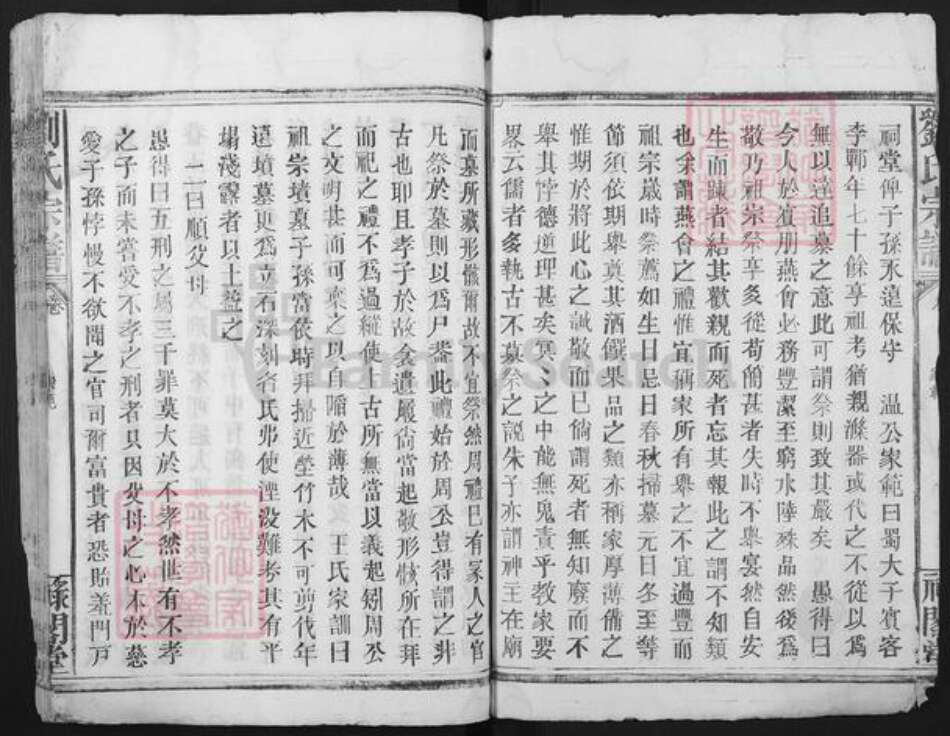 祠堂俾子孫永遠保守　溫公家範曰蜀大子賓客
李鄆年七十餘享祖考猶親滌器或代之不從以爲
無以達追慕之意此可謂祭則致其嚴矣　愚得曰
今人於賓朋燕會必務豐潔至窮水陸殊品然後爲
敬乃祖宗祭享多從苟簡甚者失時不舉宴然自安
生而疎者結其歡親而死者忘其報此之謂不知類
也余謂燕會之禮惟宜稱家所有舉之不宜過豐而
祖宗歲時祭薦如生日忌日春秋掃墓元日冬至等
節須依期舉奠其酒饌果品之類亦稱家厚薄備之
惟期於將此心之誠敬而已倘謂死者無知廢而不
舉其悖德逆理甚矣冥冥之中能無鬼責乎教家要
畧云儒者多執古不墓祭之說朱子亦謂神主在廟
而墓所藏形骸爾故不宜祭然周禮已有冡人之官
凡祭於墓則以爲尸葢此禮始於周公豈得謂之非
古也耶且孝子於故衾遺履尚當起敬形骸所在拜
而祀之禮不爲過縱使上古所無當以義起矧周公
之文明甚而可棄之以自陷於薄哉　王氏家訓曰
祖宗墳墓子孫當依時拜掃近塋竹木不可剪伐年
遠墳墓更爲立石深刻名氏弗使湮没難考其有平
塌淺露者以土益之
二曰順父母
愚得曰五刑之屬三千罪莫大於不孝然世有不孝
之子而未嘗受不孝之刑者只因父母之心本於慈
愛子孫悖慢不欲聞之官司爾富貴者恐貽羞門戸
劉氏宗譜
卷
劉氏宗譜